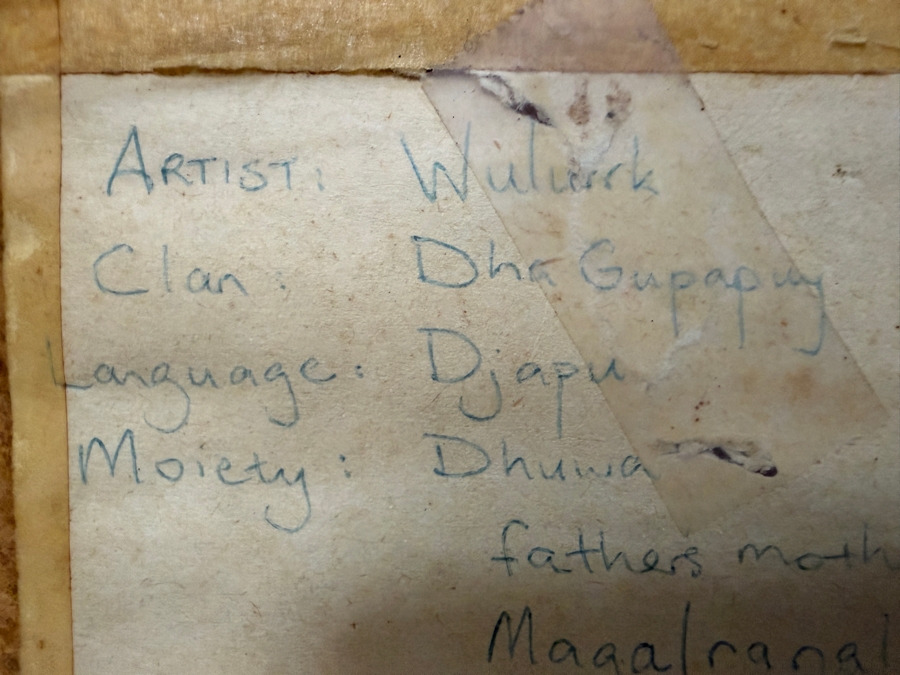 ARTIST: Wuluwrk
Clan: Dha Gupapuy
Language: Djapu
Moiety: Dhuwa
fathers moth
Magalranal